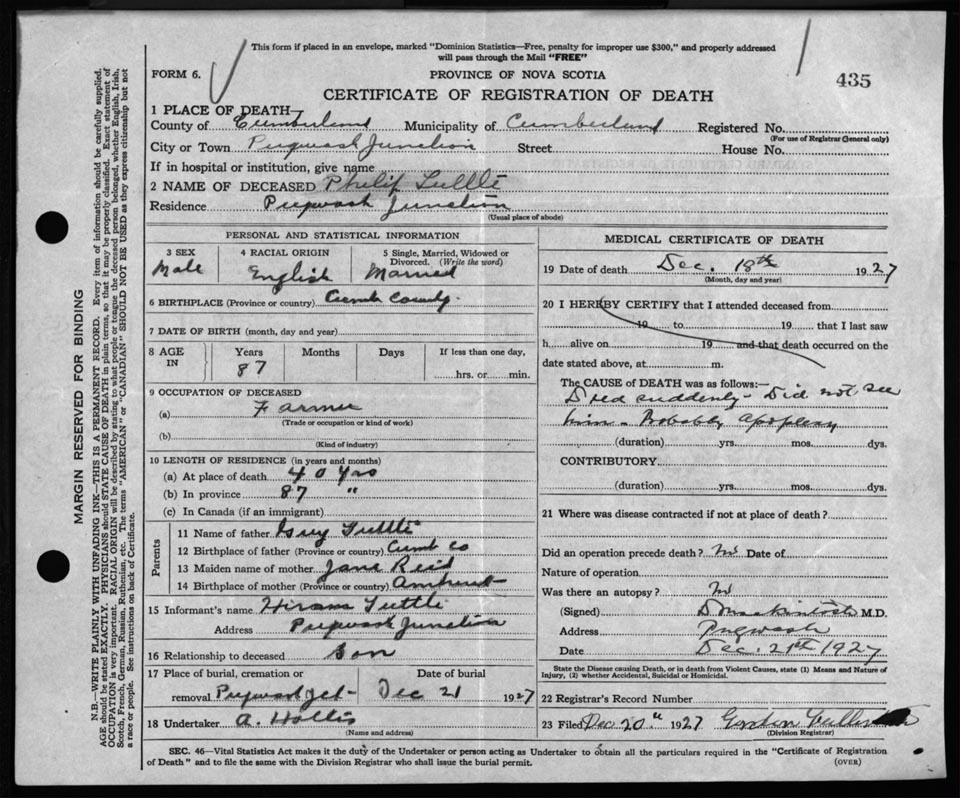 This form if placed in an envelope, marked "Dominion Statistics—Free, penalty for improper use $300," and properly addressed
will pass through the Mail "FREE"
FORM 6.
PROVINCE OF NOVA SCOTIA
435
CERTIFICATE OF REGISTRATION OF DEATH
1 PLACE OF DEATH—
County of Cumberland Municipality of Cumberland Registered No.
(For use of Registrar General only)
City or Town Pugwash Junction Street House No.
If in hospital or institution, give name
2 NAME OF DECEASED Philip Tuttle
Residence Pugwash Junction
(Usual place of abode)
PERSONAL AND STATISTICAL INFORMATION
3 SEX 4 RACIAL ORIGIN 5 Single, Married, Widowed or
Divorced. (Write the word)
Male English Married
6 BIRTHPLACE (Province or country) Cumb County.
7 DATE OF BIRTH (month, day and year)
8 AGE IN Years Months Days If less than one day,
87 hrs. or min.
9 OCCUPATION OF DECEASED
(a) Farmer
(Trade or occupation or kind of work)
(b)
(Kind of industry)
10 LENGTH OF RESIDENCE (in years and months)
(a) At place of death 40 yrs
(b) In province 87 "
(c) In Canada (if an immigrant)
Parents
11 Name of father Guy Tuttle
12 Birthplace of father (Province or country) Cumb Co
13 Maiden name of mother Jane Reid
14 Birthplace of mother (Province or country) Amherst
15 Informant's name Hiram Tuttle
Address Pugwash Junction
16 Relationship to deceased Son
17 Place of burial, cremation or Date of burial
removal Pugwash Jct- Dec 21 1927
18 Undertaker A. Hollis
(Name and address)
MEDICAL CERTIFICATE OF DEATH
19 Date of death Dec. 18th 1927
(Month, day and year)
20 I HEREBY CERTIFY that I attended deceased from
19 to 19 that I last saw
h alive on 19 and that death occurred on the
date stated above, at m.
The CAUSE OF DEATH was as follows:—
Died suddenly - Did not see
him - Probably apoplexy
(duration) yrs. mos. dys.
CONTRIBUTORY
(duration) yrs. mos. dys.
21 Where was disease contracted if not at place of death?
Did an operation precede death? No Date of
Nature of operation
Was there an autopsy? No
(Signed) D Mackintosh M.D.
Address Pugwash
Date Dec. 21th 1927
State the Disease causing Death, or in death from Violent Causes, state (1) Means and Nature of
Injury, (2) whether Accidental, Suicidal or Homicidal.
22 Registrar's Record Number
23 Filed Dec 20th 1927 Gordon
(Division Registrar)
SEC. 46—Vital Statistics Act makes it the duty of the Undertaker or person acting as Undertaker to obtain all the particulars required in the "Certificate of Registration
of Death" and to file the same with the Division Registrar who shall issue the burial permit.
(OVER)
MARGIN RESERVED FOR BINDING
N.B.—WRITE PLAINLY WITH UNFADING INK—THIS IS A PERMANENT RECORD. Every item of information should be carefully supplied.
AGE should be stated EXACTLY. PHYSICIANS should STATE CAUSE OF DEATH in plain terms, so that it may be properly classified. Exact statement of
OCCUPATION is very important. RACIAL ORIGIN will be described by stating to what people or tongue the deceased person belonged, whether English, Irish,
Scotch, French, German, Russian, Ruthenian, etc. The terms "AMERICAN" or "CANADIAN" SHOULD NOT BE USED as they express citizenship but not
a race or people. See instructions on back of Certificate.